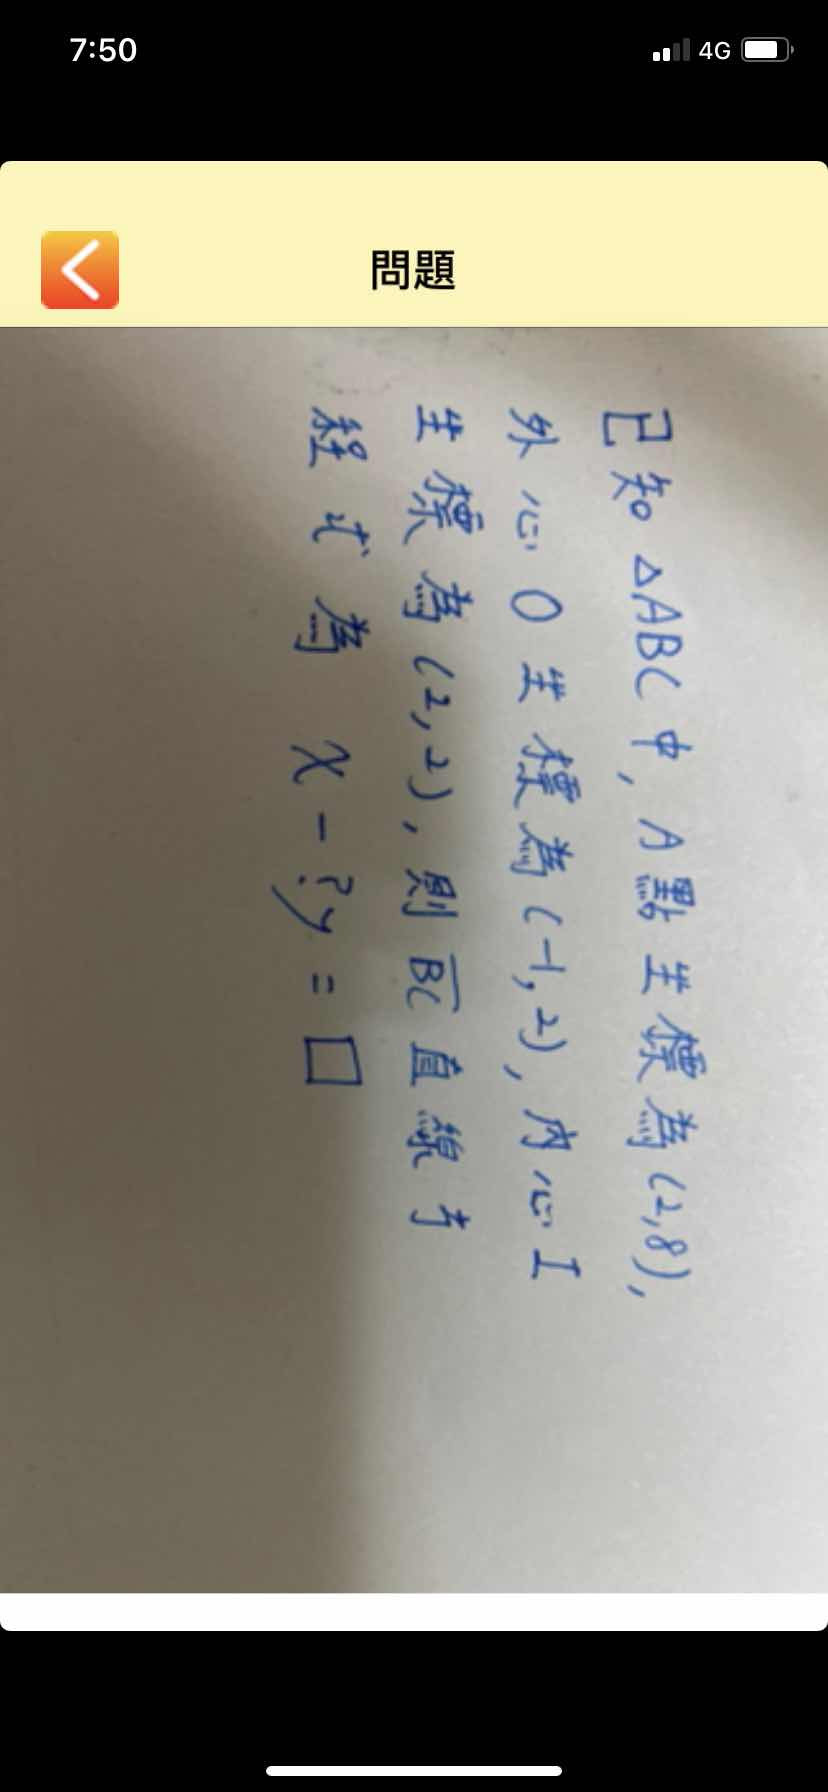 7:50
4G
問題
已知△ABC中, A點坐標為(2,8),
外心O坐標為(-1,2), 內心I
坐標為(2,2), 則BC直線方
程式為 x-?y=□